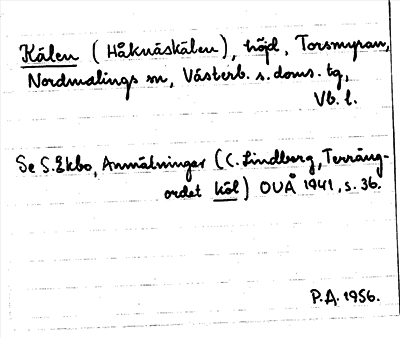 Kälen (Håknäskälen), höjd, Torsmyran,
Nordmalings sn, Västerb. s. doms. tg,
Vb. l.
Se S. Ekbo, Anmälningar (C. Lindberg, Terräng-
ordet köl) OUÅ 1941, s. 36.
P.A. 1956.